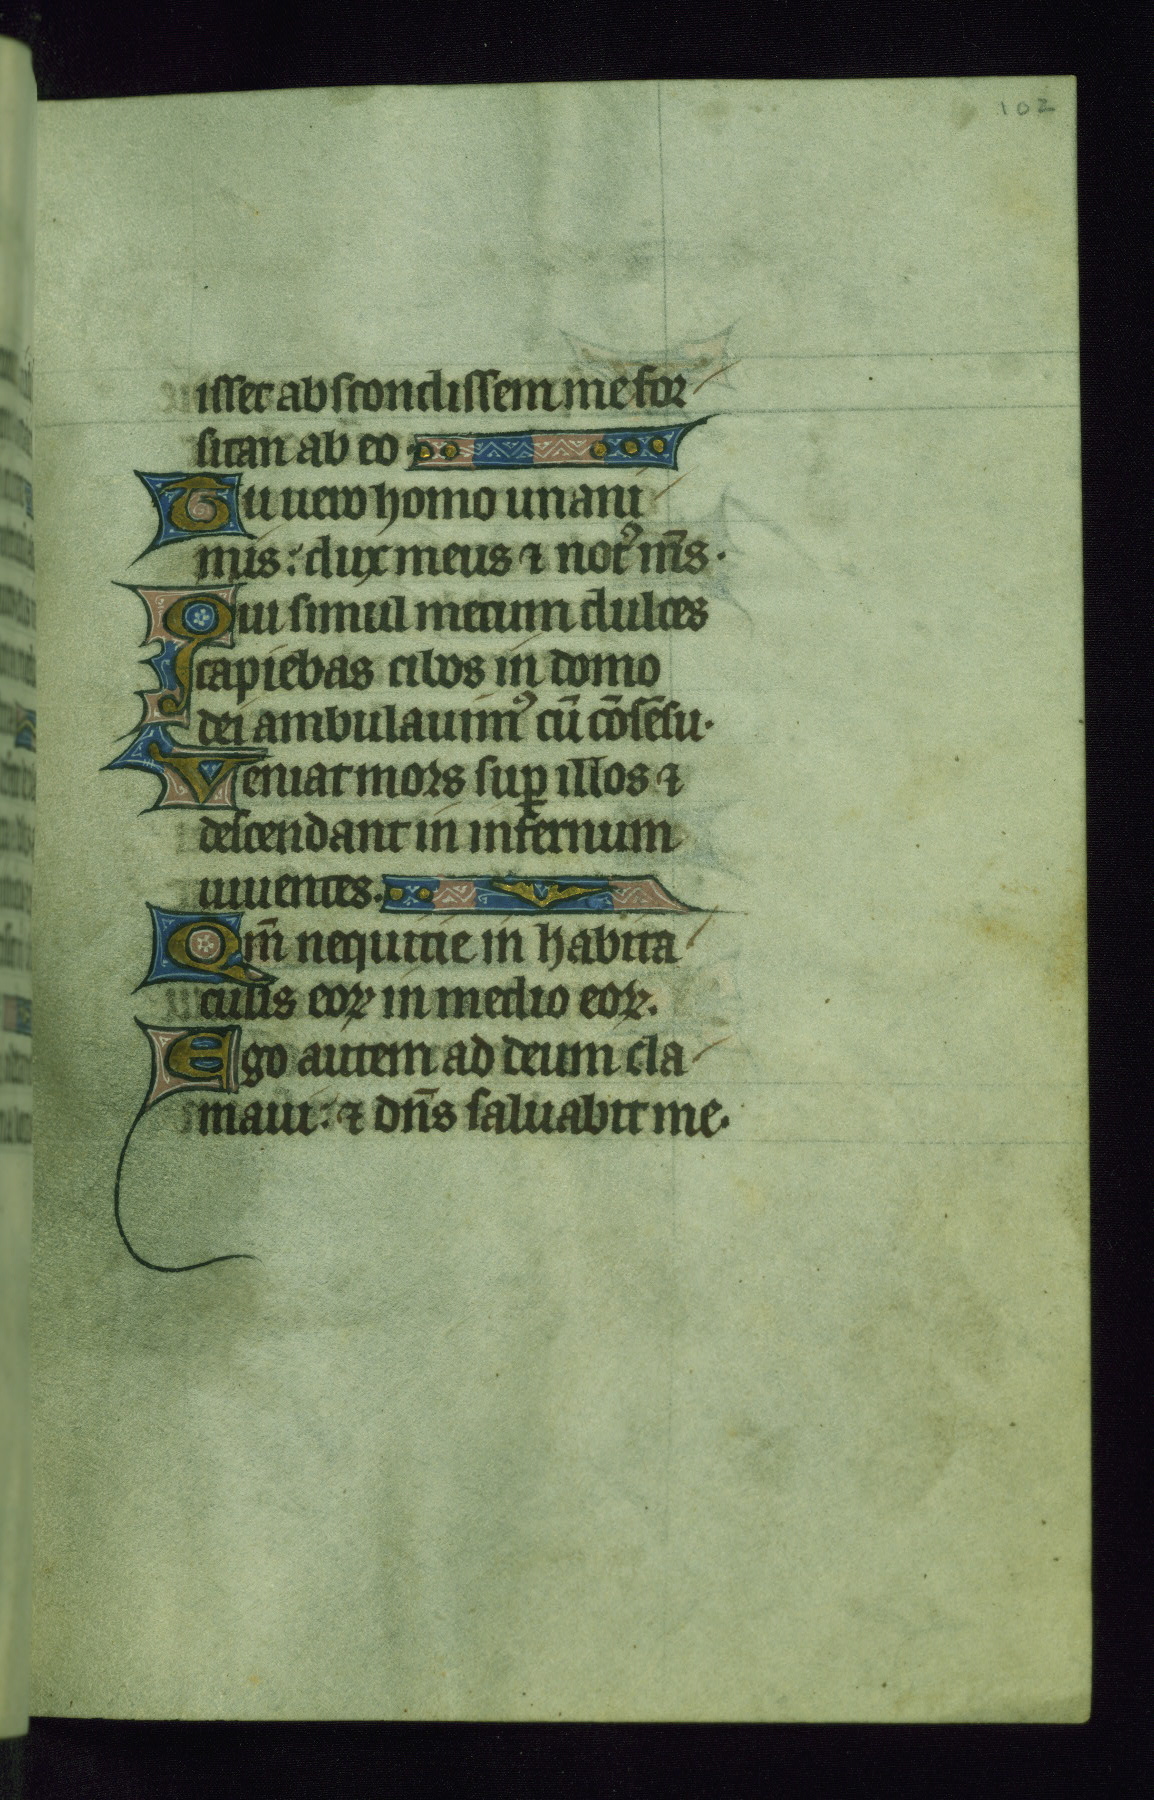 102
isset abscondissem me for
sitan ab eo.
Tu uero homo unani
mis: dux meus ⁊ not᷒ m̅s.
Qui simul mecum dulces
capiebas cibos in domo
dei ambulauim᷒ cū cōsēsu.
Veniat mors sup̱ illos ⁊
descendant in infernum
uiuentes.
Qm̅ nequitie in habita
culis eoꝝ in medio eoꝝ.
Ego autem ad deum cla
maui: ⁊ dn̅s saluabit me.